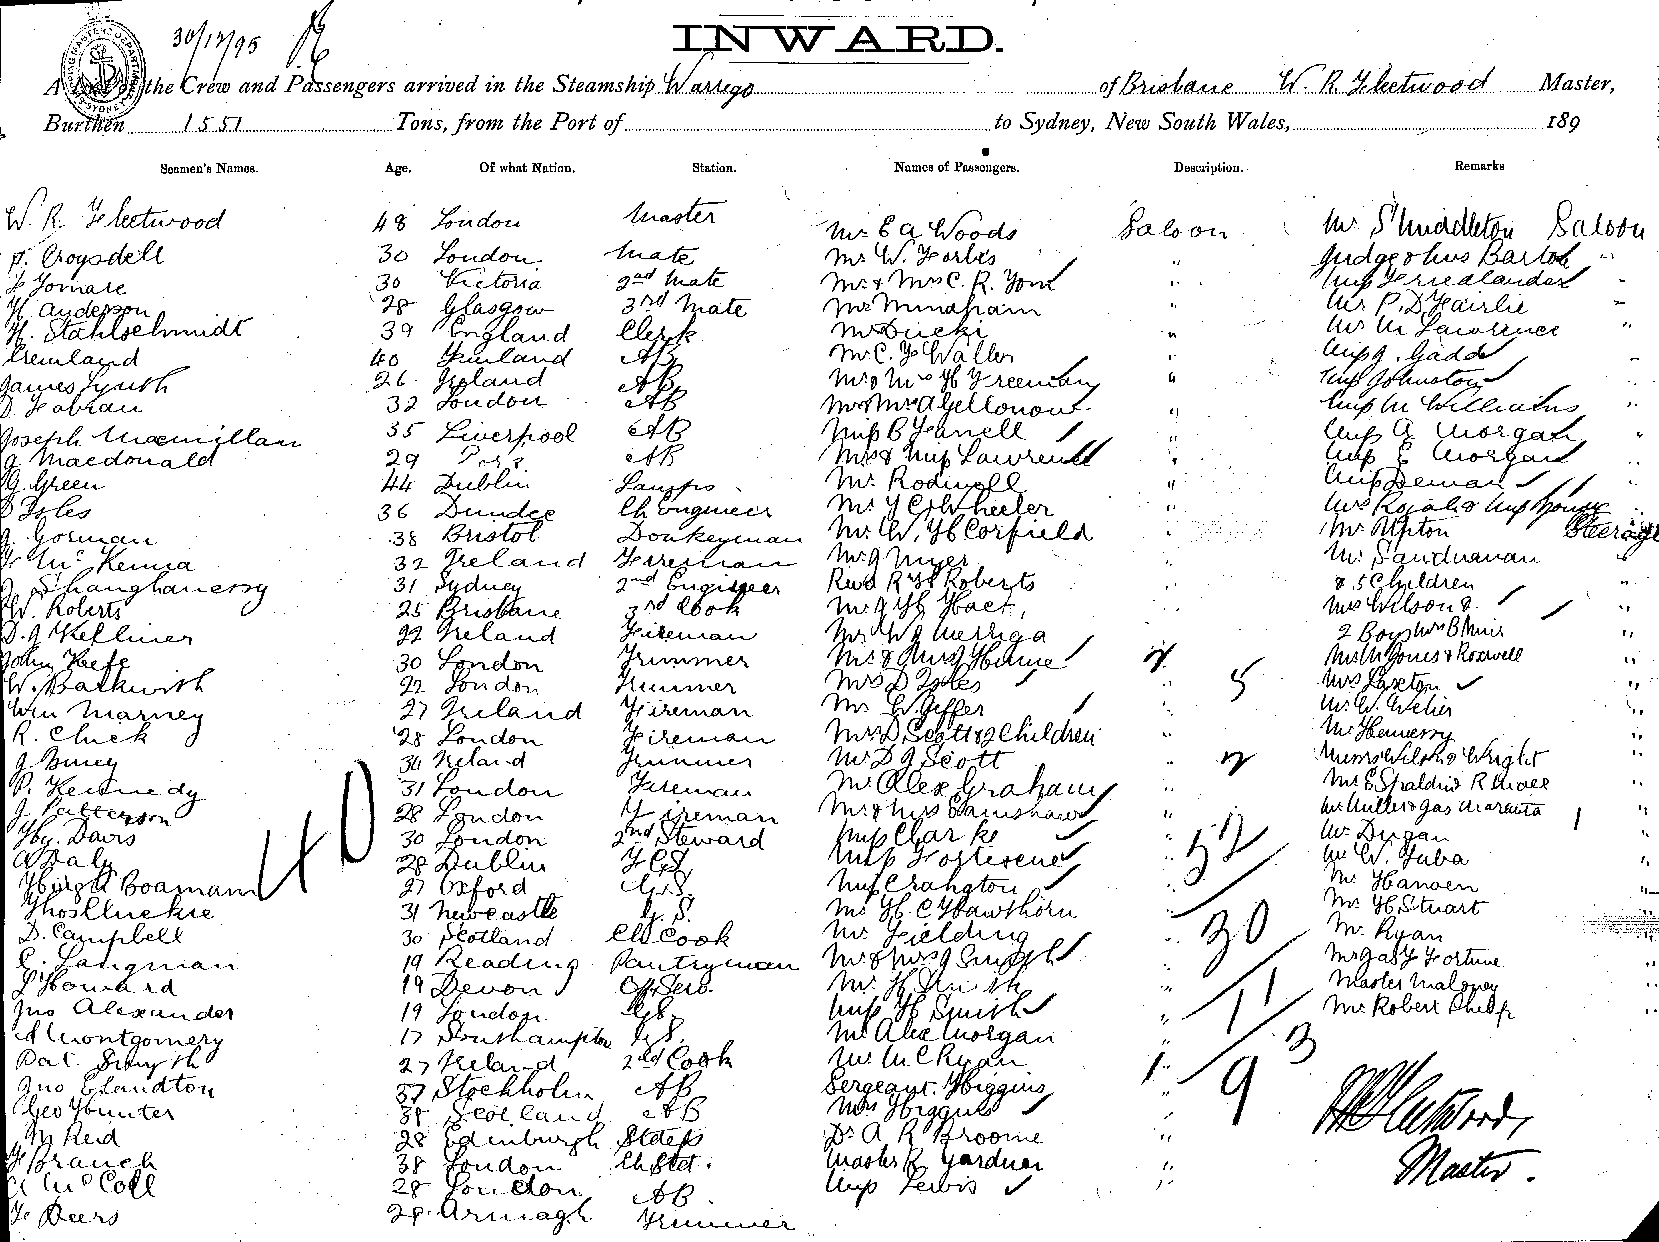 30/12/95
INWARD.
A List of the Crew and Passengers arrived in the Steamship Warrego of Brisbane W. R. Fleetwood Master,
Burthen 1551 Tons, from the Port of to Sydney, New South Wales, 189
Seamen's Names. Age. Of what Nation. Station. Names of Passengers. Description. Remarks
W. R. Fleetwood 48 London Master Mr E A Woods Saloon Mr S Middleton Saloon
P. Croysdell 30 London Mate Mr W. Forbes " Judge Barton "
30 Victoria 2nd Mate Mr & Mrs C. R. York " Miss Friedlander "
H. Anderson 28 Glasgow 3rd Mate Mr Minahan " Mr P. D Fairlie "
H. Stahlschmidt 39 England Clerk " Mr M Lawrence "
40 Finland AB Mr C. F Waller Miss Gadd "
James Lynch 26 Ireland AB Mr & Mrs H Freeman " Miss Johnston "
D Fabian 32 London AB Mr & Mrs A " Miss M Williams "
Joseph Macmillan 35 Liverpool AB Miss B " Miss A Morgan "
J Macdonald 29 AB Mrs & Miss Lawrence " Miss E Morgan "
G. Green 44 Dublin Lamps Mr Rodwell " Miss
D Foles 36 Dundee Ch Engineer Mr Wheeler " Mrs & Miss
J. Gorman 38 Bristol Donkeyman Mr W. H Corfield Mr Upton Steerage
Mc Kenna 32 Ireland Fireman Mr J Myer Mr
J Shanghanessy 31 Sydney 2nd Engineer Revd R H Roberts & 5 Children
W. Roberts 25 Brisbane 3rd Cook Mr Mrs Wilson &
D. J Kelliner 22 Ireland Fireman Mr 2 Boys Mrs B Muir "
John Keefe 30 London Trimmer Mr & Mrs J Horne 2 Mr M Jones & Roswell "
W. Barkwith 22 London Trimmer Mrs D Foles " 5 Mrs Saxton "
Wm Marney 27 Ireland Fireman Mr W. Jeffer " Mr W. "
R. Cluck 28 London Fireman Mrs D Scott & 2 Children Mr "
34 Ireland Trimmer Mr D J Scott 2 Wilson & Wright "
P. Kennedy 31 London Fireman Mr Alex Graham " Mr E Spaldin R "
J. Patterson 28 London Fireman Mr & Mrs " Mr Miller & Jas 1 "
Hy. Davis 30 London 2nd Steward Miss Clarke 52 Mr Dugan "
A Daly 28 Dublin F C S Miss Fortescue Mr W. "
40 Boamam 27 Oxford G. S. Miss Crangton Mr Hansen
Thos Cluckie 31 Newcastle G. S. Mr H. C Hawthorn Mr H. Stuart
D. Campbell 30 Scotland Ch Cook Mr Fielding 30 Mr Ryan
C. Langman 19 Reading Pantryman Mr & Mrs J Smyth Mr Jas F Fortune
J Howard 19 Devon Mr H Smith " 11 Master Maloney
Jno Alexander 19 London G.S. Miss H Smith " Mr Robert
A Montgomery 17 Southampton G.S. Mr Alex Morgan " 3
Pat. Smyth 27 Ireland 2nd Cook Mr M C Ryan 1 9
Jno Elandton 37 Stockholm AB Sergeant Higgins "
Geo Hunter 38 Scotland AB Mrs Higgins "
M Reid 28 Edinburgh Dr A R Broome "
F Branch 38 London Ch Stet. Master R Gardner "
A McColl 28 London AB. Miss Lewis "
F Beers 28 Armagh Trimmer
W R Fleetwood,
Master.